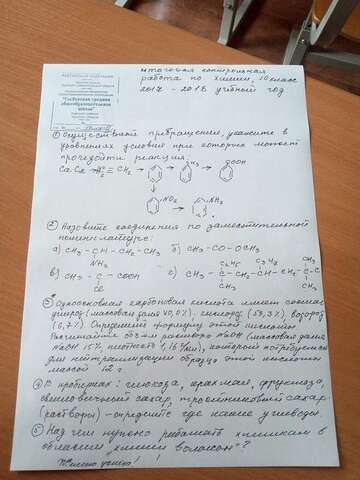 итоговая контрольная
работа по химии, 10 класс
2017 – 2018 учебный год
общеобразовательная
школа"
① Осуществить превращение, укажите в
уравнениях условия при которых может
проходить реакция.
CaC₂ → CH ≡ CH₂ → → CH₃ → COOH
NO₂ → NH₂
② Назовите соединения по заместительной
номенклатуре:
а) CH₃ – CH – CH₂ – CH₃ б) CH₃ – CO – O – CH₃
NH₂
C₂H₅ C₂H₅
в) CH₃ – C – COOH г) CH₃ – C –
Cl CH₃
③ Одноосновная карбоновая кислота имеет состав
углерод (массовая доля 40,0%), кислород (53,3%), водород
(6,7%). Определите формулу этой кислоты.
Рассчитайте объём раствора NaOH (массовая доля
NaOH 15%, плотность 1,16 г/мл), который потребуется
для нейтрализации образца этой кислоты
массой 12 г.
④ В пробирках: глюкоза, крахмал, фруктоза,
сахар, тростниковый сахар
(растворы) – определите где какие углеводы.
⑤ Над чем нужно работать химикам в
области „химии волокон"?
Желаю успеха!